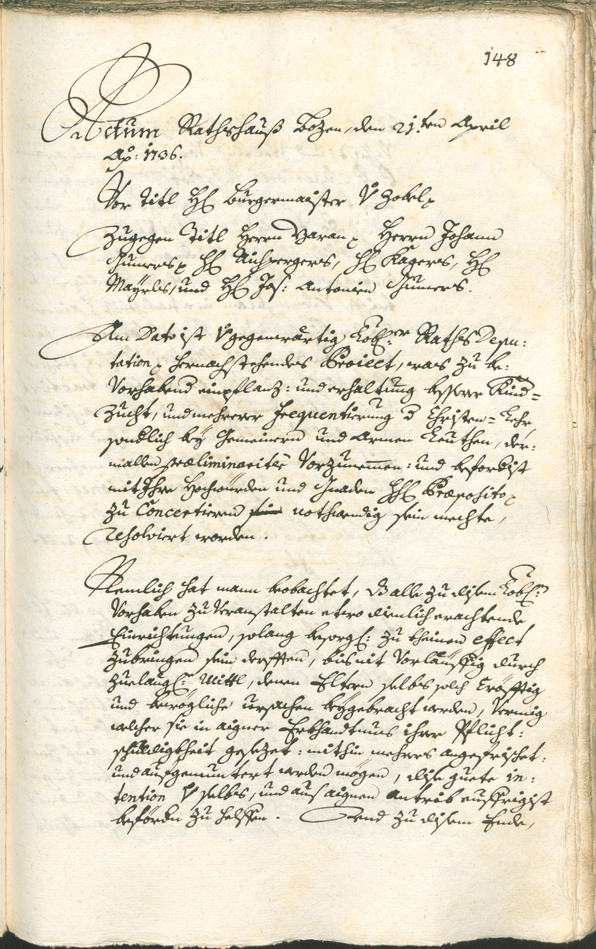 148
Actum Rathshauß Bozen, den 21.ten April
Ao: 1736.
Vor Titl H: Burgermaister v Zobel
Zugegen Titl Herrn Maran, Herrn Johann
Gumers, H: Aichpergers, H: Kagers, H:
Mayrls, und H: Jos: Antonien Gumers.
Am Dato ist v gegenwärtig Löbl:er Raths Depu-
tation, hernachstehendes Proiect, was zu be:
Vorhabend einpflanz: und erhaltung bessere Kind-
zucht, und mehrere frequentierung d Christen-Lehr
sondlich bey Gemeinern und Armen Leuthen, der-
mallen præliminariter Vorzunemmen: und beforderist
mit Ihro Hochwürden und Gnaden H: Præposito
zu Concertieren nothwendig sein mechte,
resolviert worden.
Nemlich hat mann beobachtet, d alle zu disem Löbl:
Vorhaben zu Veranstalten etwo dienlich erachtende
Einrichtungen, solang besorgl: zu kheinen effect
zubringen sein derfften, bis nit Vorläuffig durch
zuelängl: Mittl, denen Eltern selbs solch kräfftig
und bewögliche ursachen beygebracht werden, Vermig
welcher sie in aigner Erkhandtnus ihrer Pflicht-
schuldigkheit gesezet: mithin mehrers angefrischet:
und aufgemuntert werden mögen, dise guete in-
tention v selbs, und aus aignen antrib eyffrigist
befördern zu helffen. Und zu disem Ende,